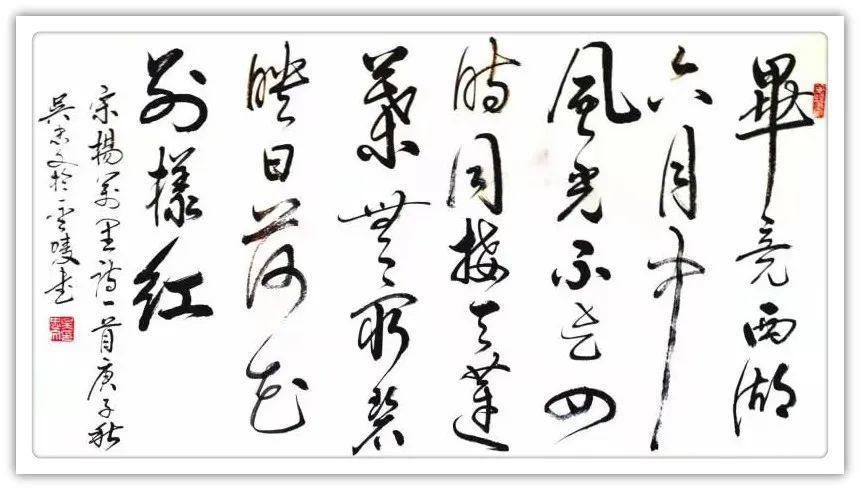 畢竟西湖
六月中
風光不與四
時同接天蓮
葉無窮碧
暎日荷花
別樣紅
宋楊萬里詩一首庚子秋
吴忠文於書